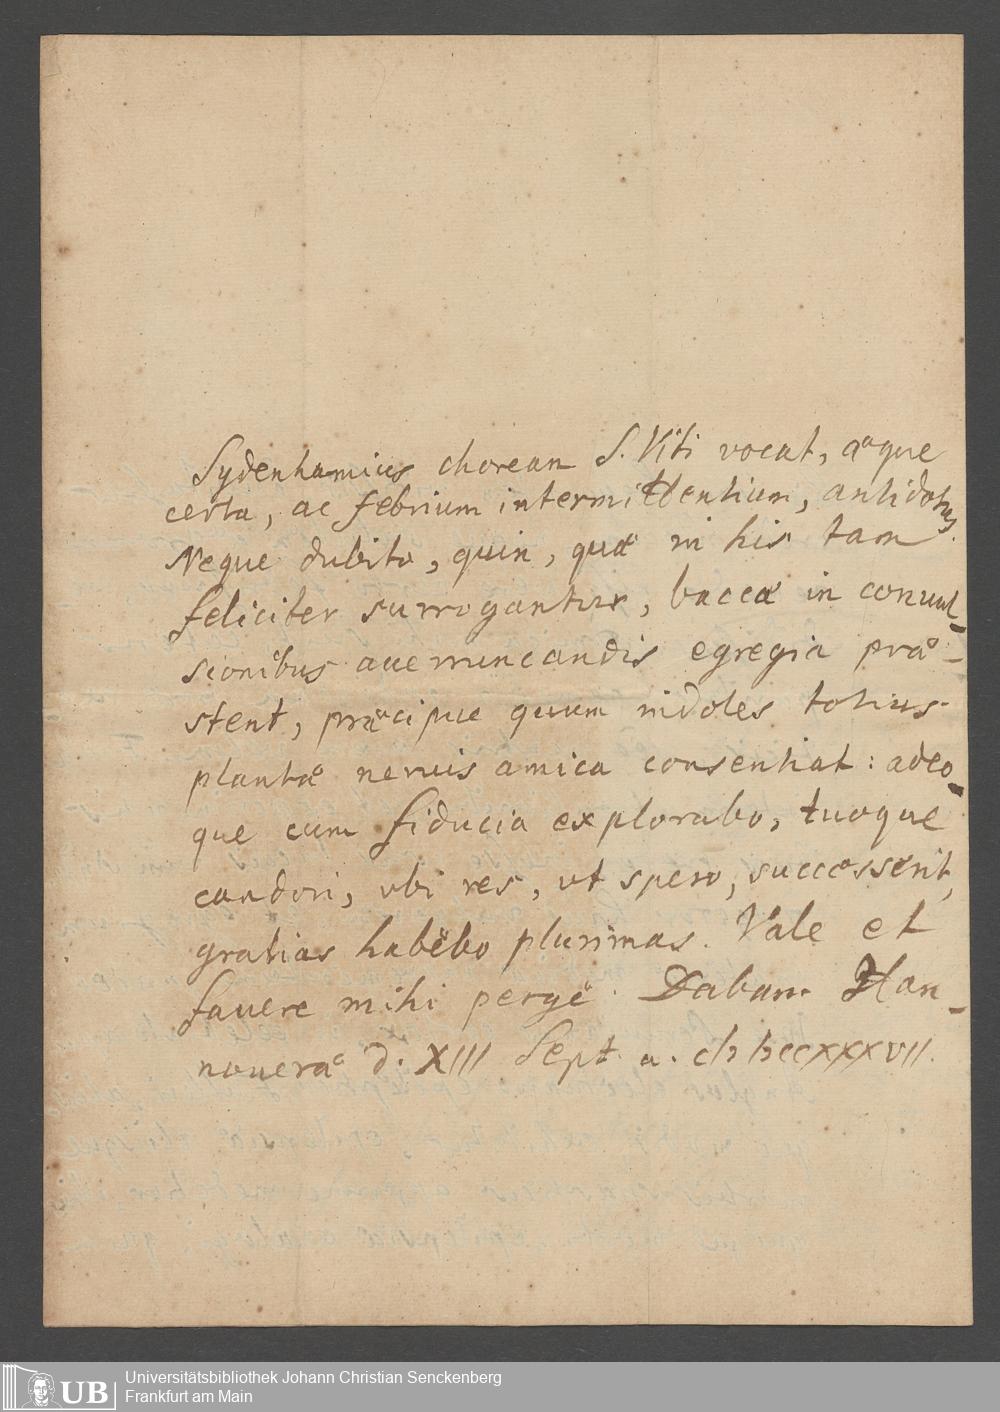 Sydenhamius choream S. Viti vocat, æque
certa, ac febrium intermittentium, antidotus.
Neque dubito, quin, quæ in his tam
feliciter surrogantur, baccæ in conuul-
sionibus auerruncandis egregia præ-
stent, præcipue quum indoles totius
plantæ neruis amica consentiat: adeo-
que cum fiducia explorabo, tuoque
candori, vbi res, vt spero, successerit,
gratias habebo plurimas. Vale et
fauere mihi perge. Dabam Han-
noueræ d. XIII Sept. a. cIↄ Iↄccxxxvii.
Universitätsbibliothek Johann Christian Senckenberg
Frankfurt am Main
UB